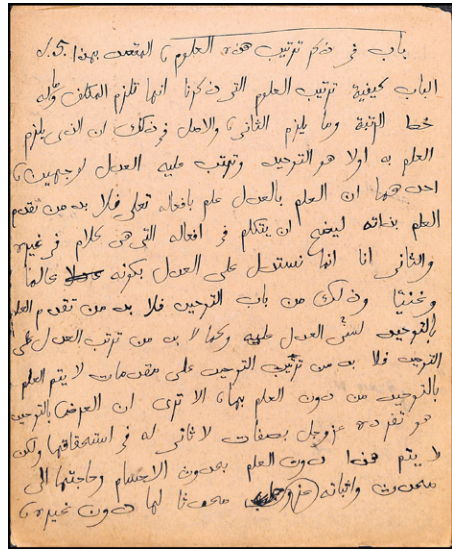 باب فى ذكر ترتيب هذه العلوم، المقصد بهذا 5.
الباب كيفية ترتيب العلوم التى ذكرنا انها تلزم المكلف وماله
حظ الرتبة وما يلزم الثانى، والاصل فى ذلك ان الذى يلزم
العلم به اولا هو التوحيد وترتب عليه العدل لوجهين،
احدهما ان العلم بالعدل علم بافعاله تعلى فلا بد من تقدم
العلم بذاته ليصح ان يتكلم فى افعاله التى هى كلام فى غيره
والثانى انا انما نستدل على العدل بكونه عالما
وغنيا وذلك من باب التوحيد فلا بد من تقدم العلم
بالتوحيد العدل عليه وكما لا بد من ترتب العدل على
التوحيد فلا بد من ترتيب التوحيد على مقدمات لا يتم العلم
بالتوحيد من دون العلم بها، الا ترى ان الغرض بالتوحيد
هو تفرده عز وجل بصفات لا ثانى له فى استحقاقها ولكن
لا يتم هذا دون العلم بحدوث الاجسام وحاجتها الى
محدث واثباته (عز وجل) محدثا لها دون غيره،